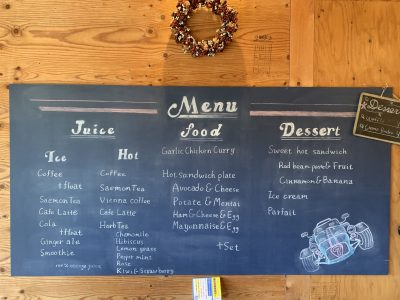 Menu
Juice
Ice
Coffee
+float
Saemon Tea
Cafe Latte
Cola
+float
Ginger ale
Smoothie
Hot
Coffee
Saemon Tea
Vienna coffee
Cafe Latte
Herb Tea
Chamomile
Hibiscus
Lemon grass
Pepper mint
Rose
Kiwi & Strawberry
food
Garlic Chicken Curry
Hot Sandwich plate
Avocado & Cheese
Potato & Mentai
Ham & Cheese & Egg
Mayonnaise & Egg
+Set
Dessert
Sweet hot sandwich
Red bean paste & Fruit
Cinnamon & Banana
Ice cream
Parfait
Dessert